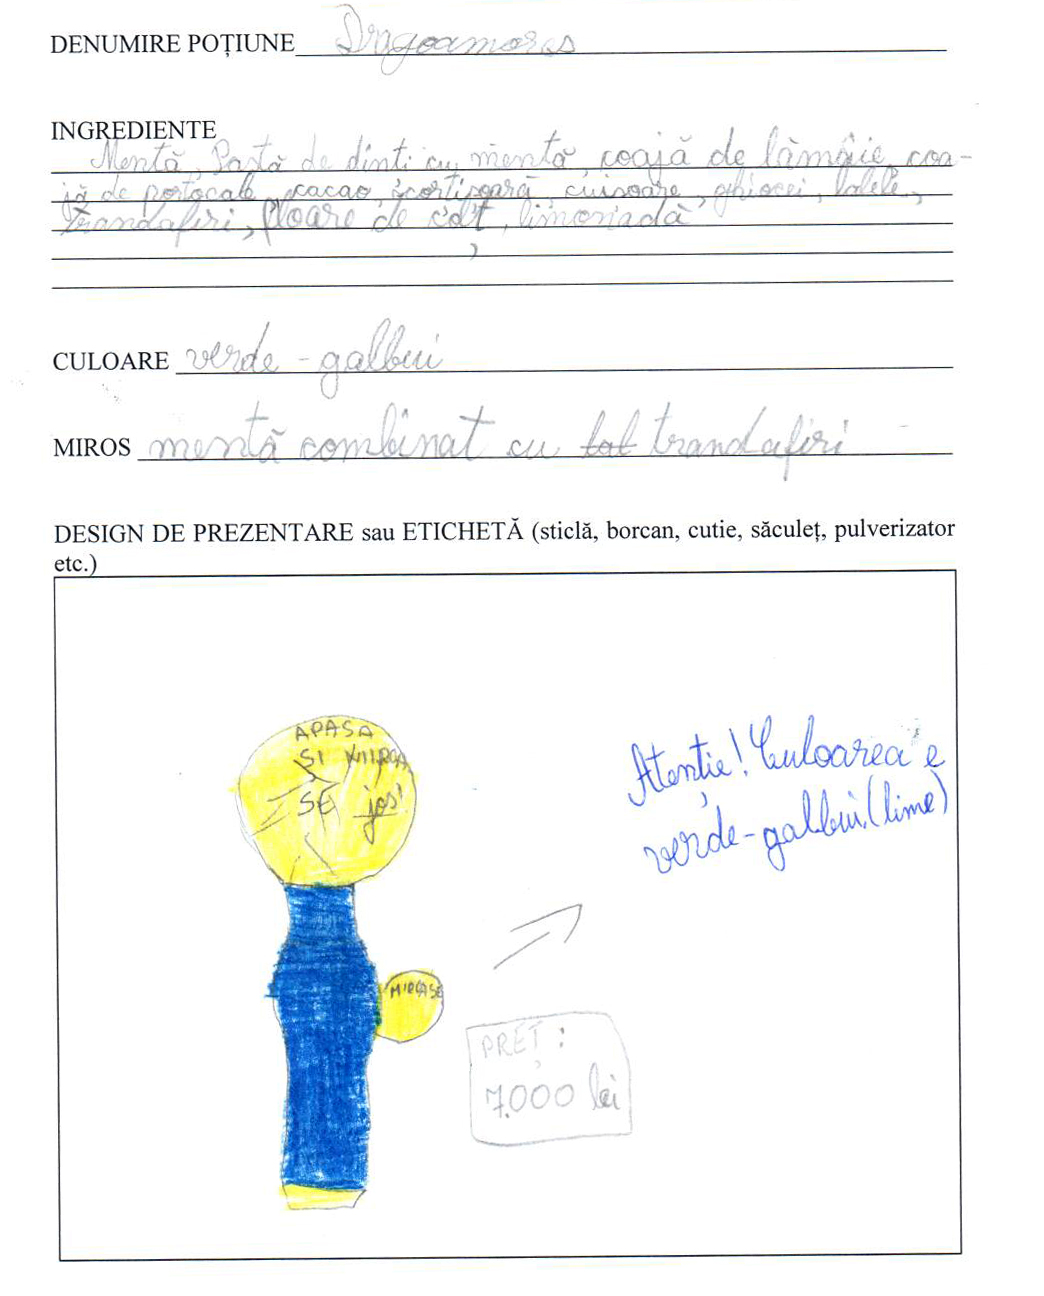 DENUMIRE POȚIUNE Dragoamores
INGREDIENTE
Mentă, Pastă de dinti cu mentă, coajă de lămâie, coa-
jă de portocale, cacao, scortisoară, cuisoare, ghiocei, lalele,
trandafiri, floare de colț, limonadă
CULOARE verde - galbui
MIROS mentă combinat cu lal trandafiri
DESIGN DE PREZENTARE sau ETICHETĂ (sticlă, borcan, cutie, săculeț, pulverizator
etc.)
APASA
SI
SE jos!
Atenție! Culoarea e
verde-galbui. (lime)
PREȚ :
7.000 lei